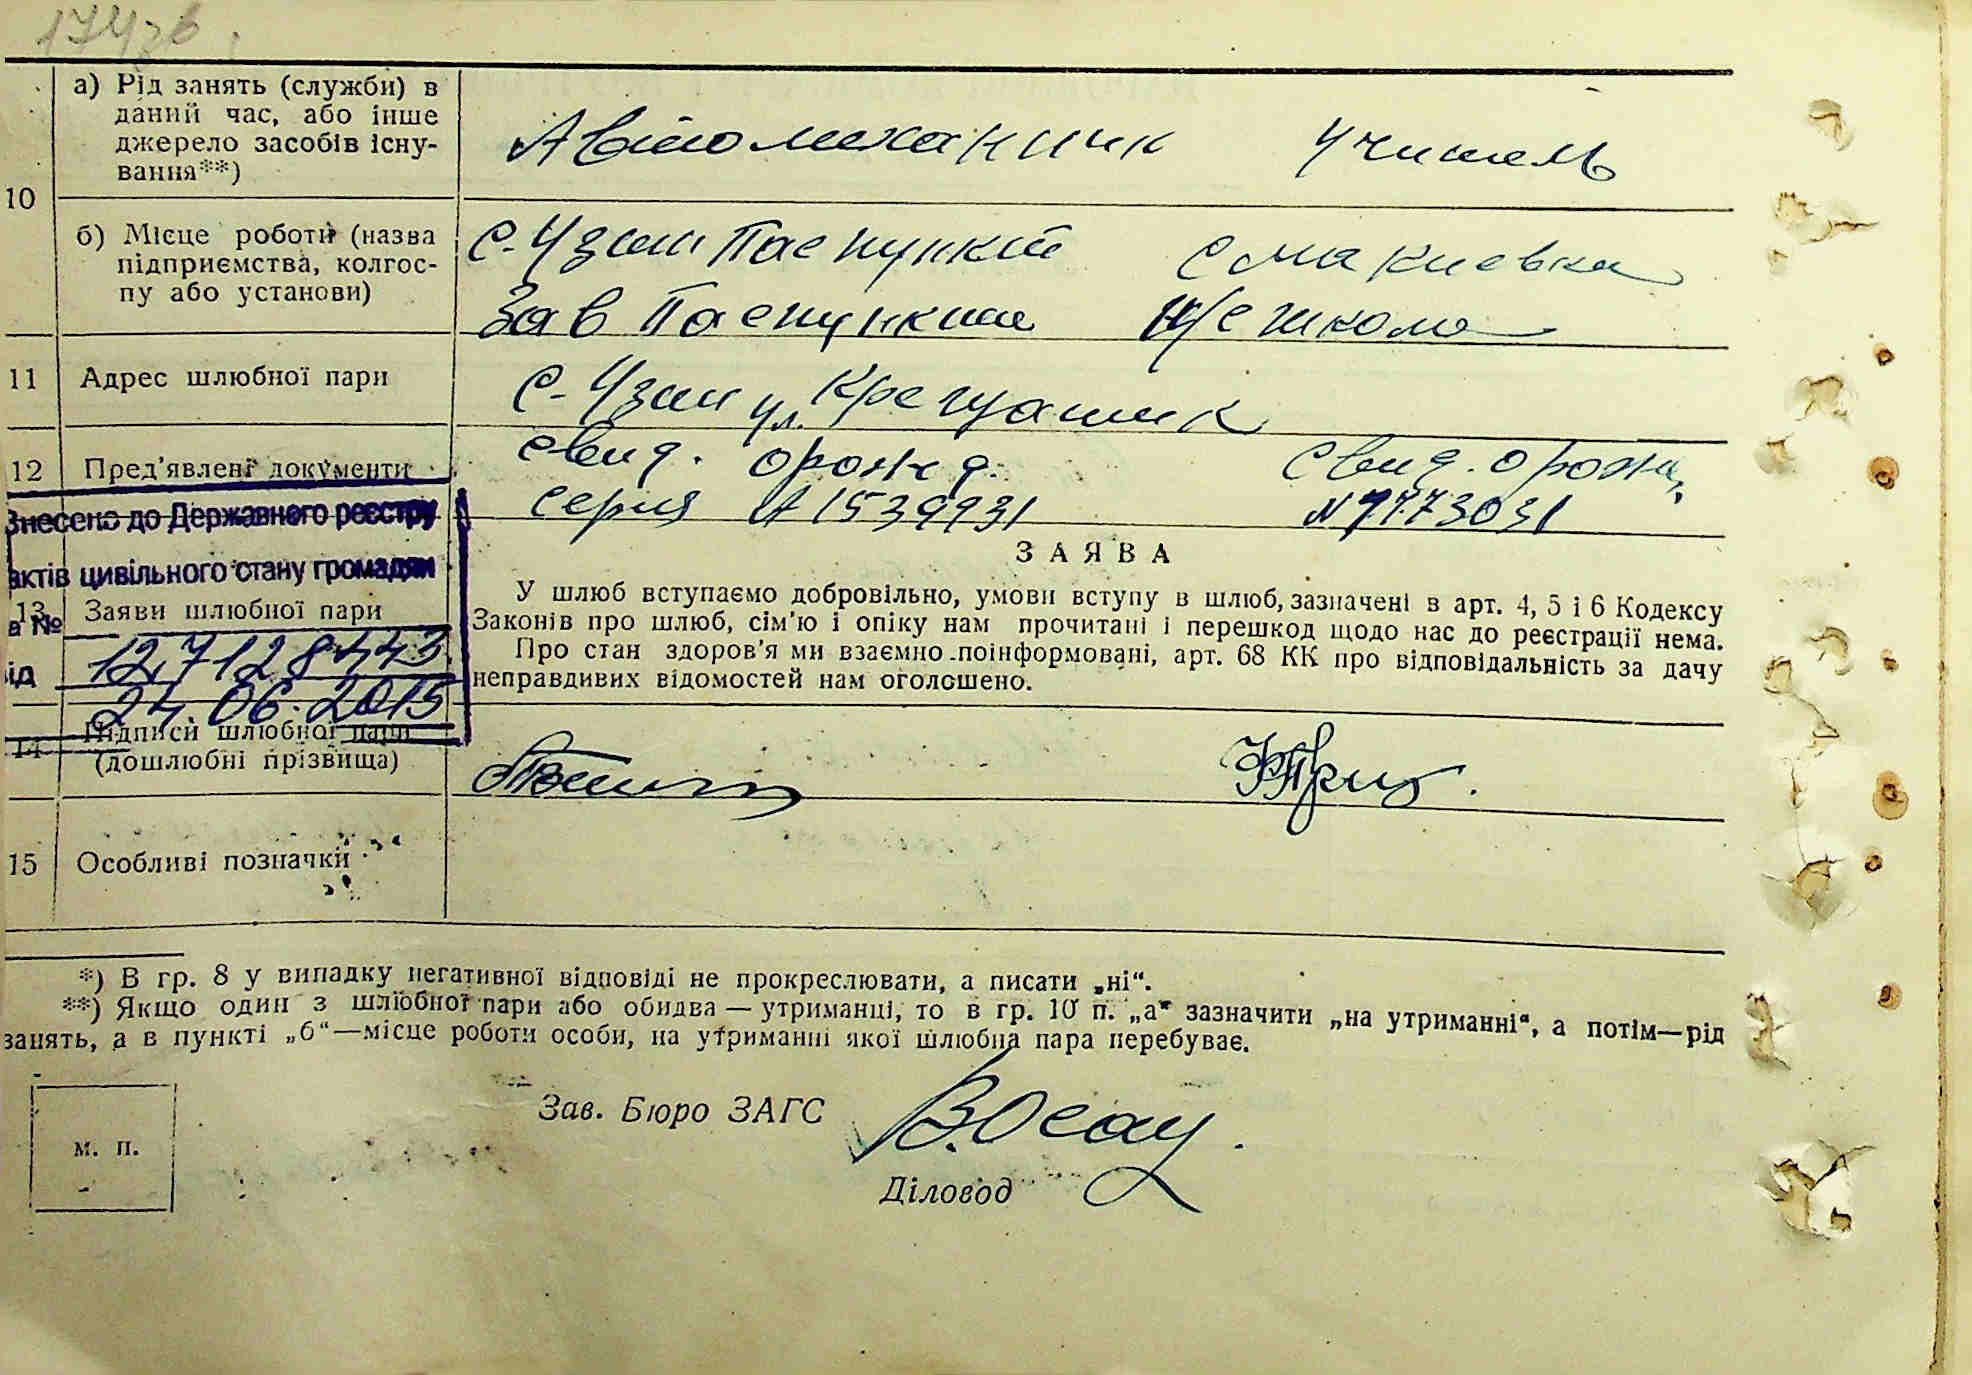 174зв.
10
а) Рід занять (служби) в
даний час, або інше
джерело засобів існу-
вання**)
Автомеханик Учитель
б) Місце роботи (назва
підприємства, колгос-
пу або установи)
с. Узин Заспункт с Макиевка
Зав Заспунктом н/с школа
11 Адрес шлюбної пари
с. Узин ул.
12 Пред'явлені документи
Свид. о рожд. Свид. о рожд.
серия А 1539931 № 7773031
Знесено до Державного реєстру
актів цивільного стану громадян
за №
12712 8443
від
24.06.2015
13 Заяви шлюбної пари
ЗАЯВА
У шлюб вступаємо добровільно, умови вступу в шлюб, зазначені в арт. 4, 5 і 6 Кодексу
Законів про шлюб, сім'ю і опіку нам прочитані і перешкод щодо нас до реєстрації нема.
Про стан здоров'я ми взаємно поінформовані, арт. 68 КК про відповідальність за дачу
неправдивих відомостей нам оголошено.
14 Підписи шлюбної пари
(дошлюбні прізвища)
15 Особливі позначки
*) В гр. 8 у випадку негативної відповіді не прокреслювати, а писати „ні“.
**) Якщо один з шлюбної пари або обидва — утриманці, то в гр. 10 п. „а“ зазначити „на утриманні“, а потім—рід
занять, а в пункті „б“—місце роботи особи, на утриманні якої шлюбна пара перебуває.
Зав. Бюро ЗАГС
Діловод
м. п.